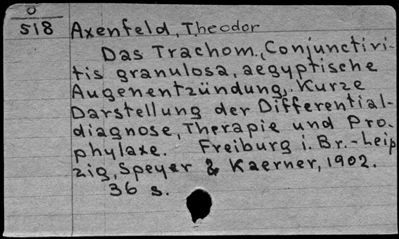 O
518
Axenfeld, Theodor
Das Trachom, Conjunctivi-
tis granulosa, aegyptische
Augenentzündung. Kurze
Darstellung der Differential-
diagnose, Therapie und Pro-
phylaxe. Freiburg i. Br. - Leip
zig, Speyer & Kaerner, 1902.
36 s.